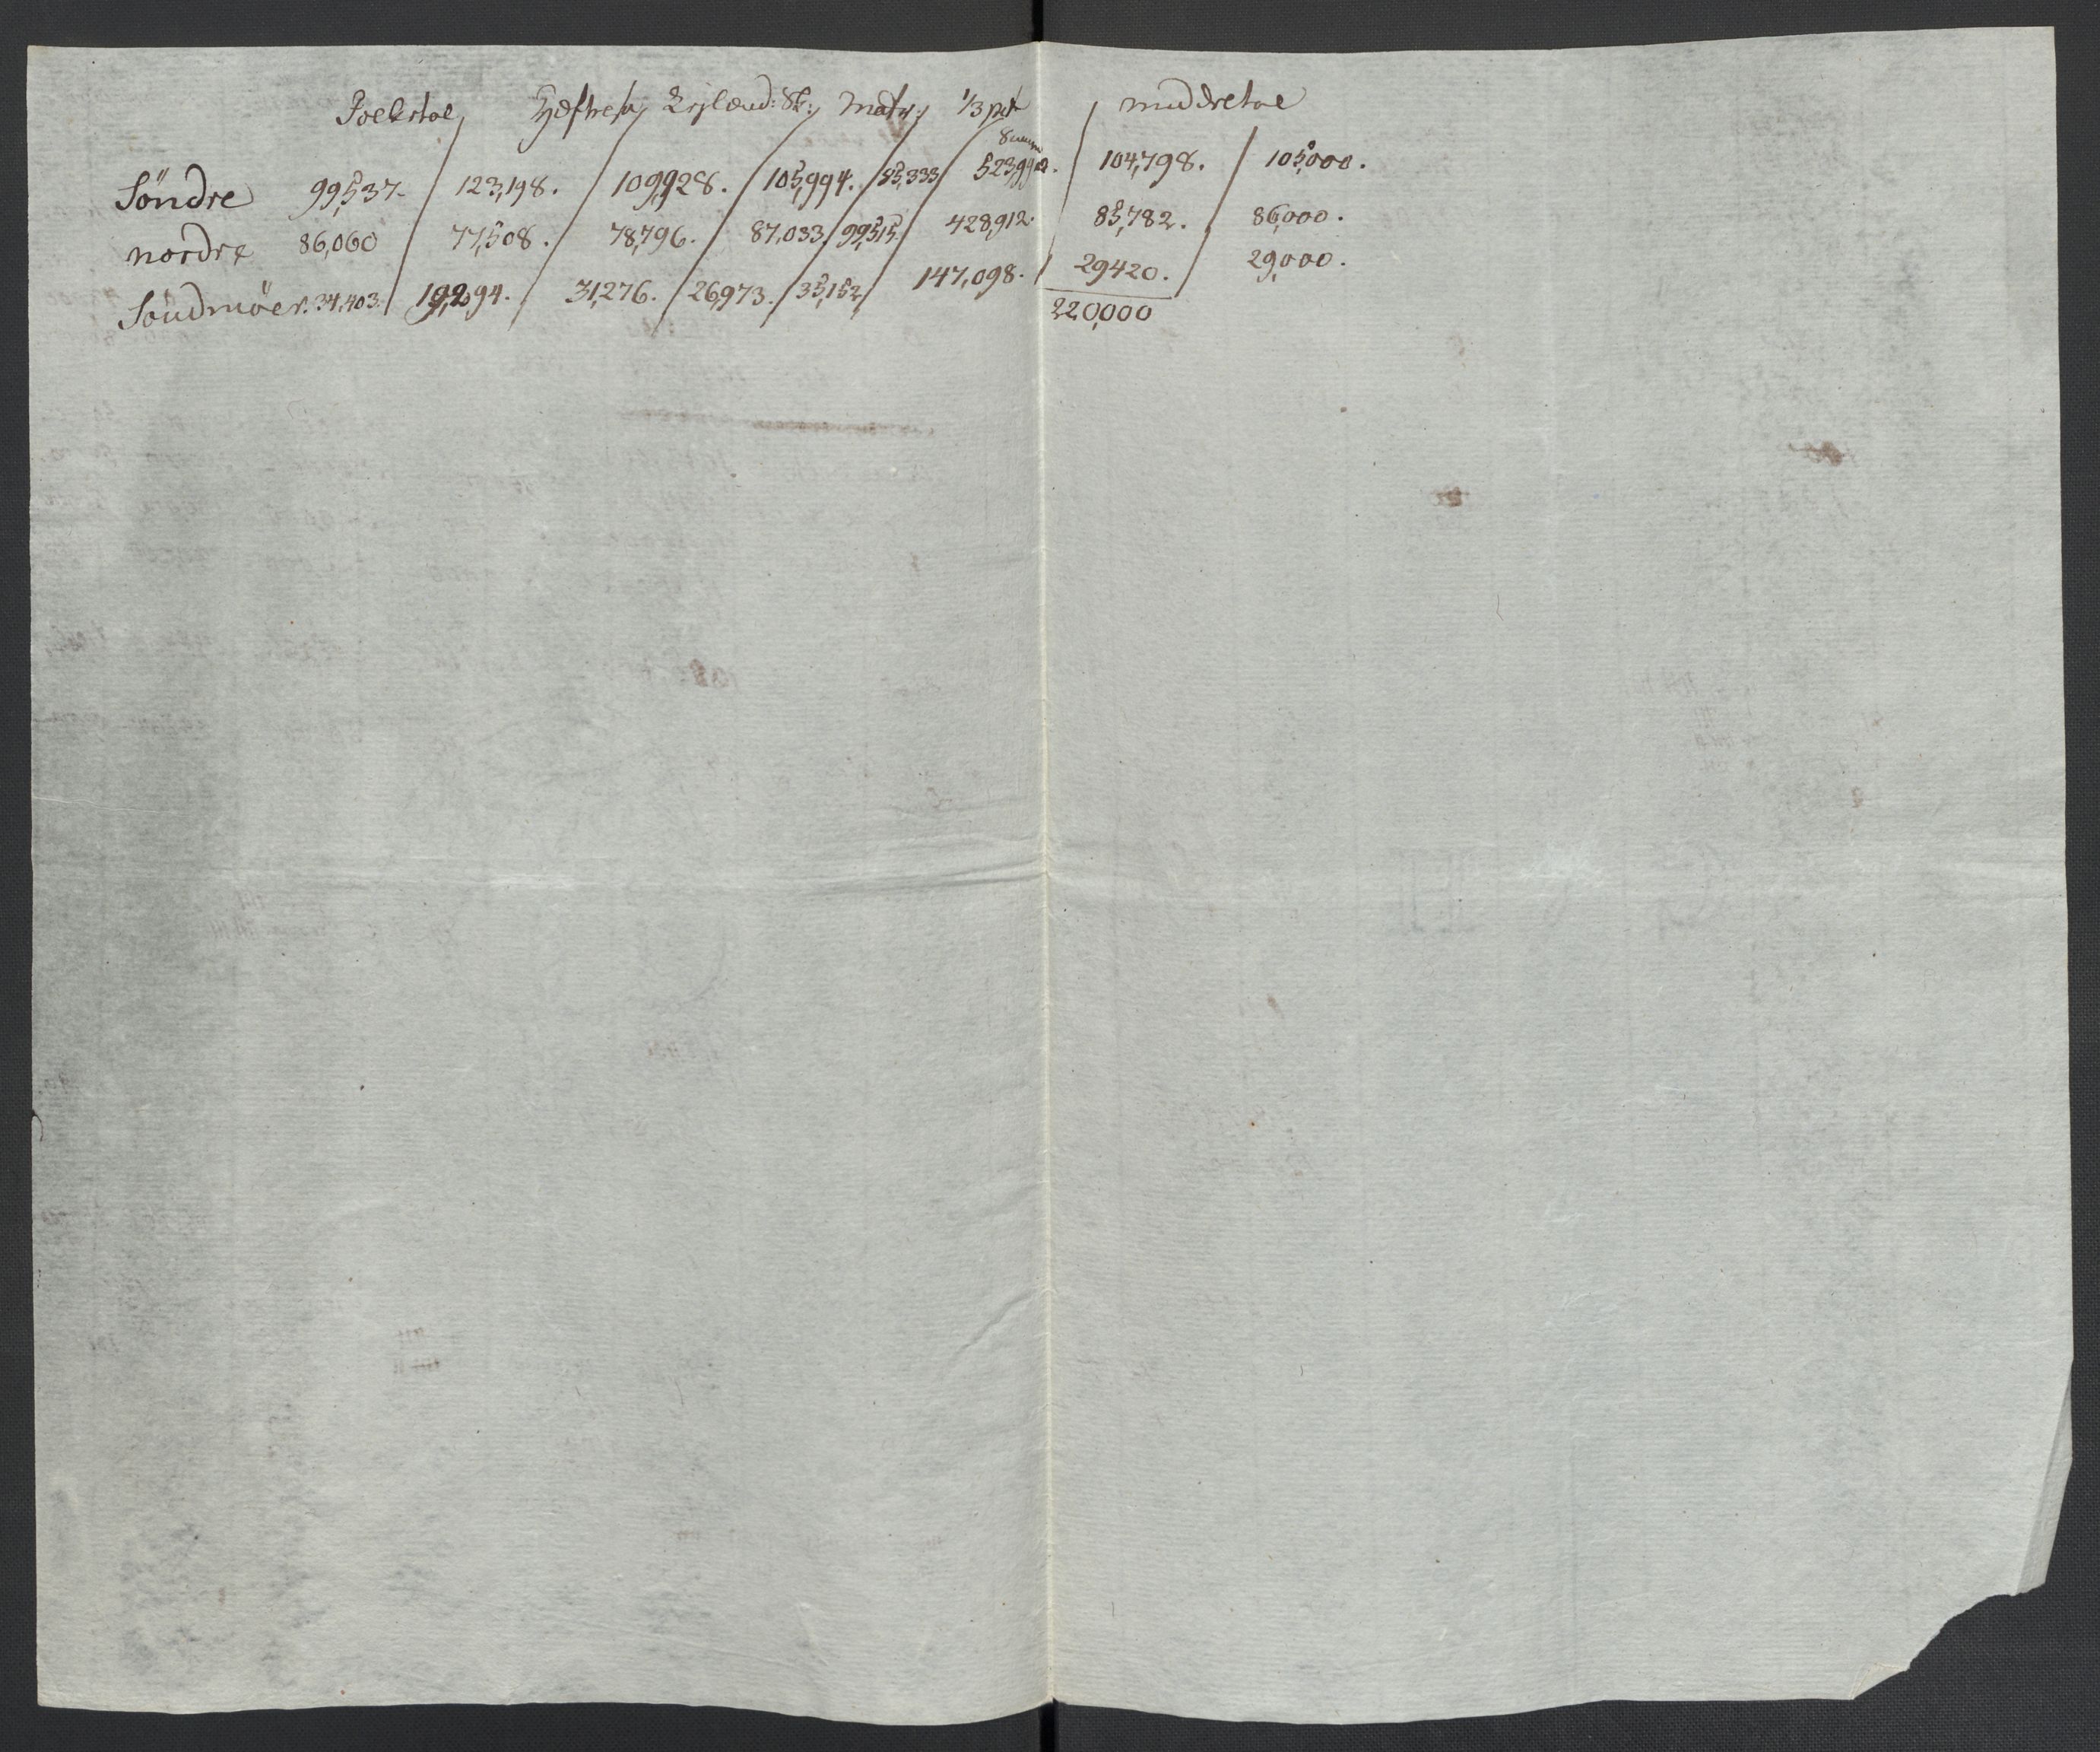 Folketal / Hefters / Leilænd: Sk: / Matr: / 1/3 part / middeltal
Summa
Söndre 99,537. / 123,198. / 109,928. / 105,994. / 85,333 / 523,990. / 104,798. / 105,000.
nordre 86,060 / 77,508. / 78,796. / 87,033 / 99,515. / 428,912. / 85,782. / 86,000.
Söndmöer. 34,403. / 19,294. / 31,276. / 26,973. / 35,152 / 147,098. / 29420. / 29,000.
220,000